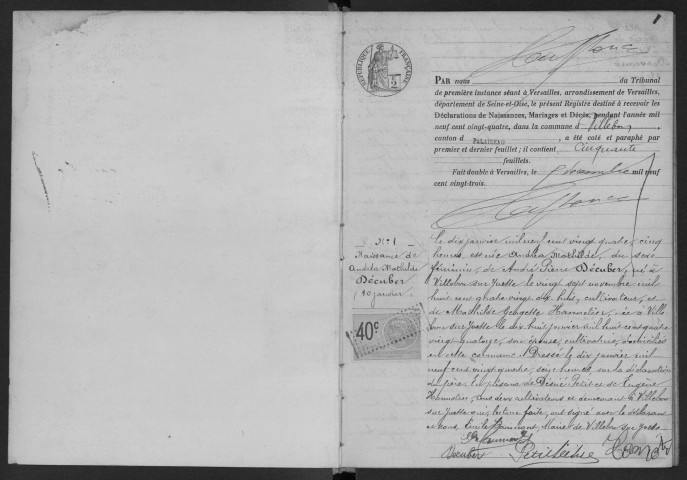 1
RÉPUBLIQUE FRANÇAISE
2
PAR nous du Tribunal
de première instance séant à Versailles, arrondissement de Versailles,
département de Seine-et-Oise, le présent Registre destiné à recevoir les
Déclarations de Naissances, Mariages et Décès, pendant l'année mil
neuf cent vingt-quatre, dans la commune d Villebon,
canton d PALAISEAU, a été coté et paraphé par
premier et dernier feuillet; il contient Cinquante
feuillets.
Fait double à Versailles, le décembre mil neuf
cent vingt-trois.
N° 1
Naissance de
Andréa Mathilde
Décuber
10 janvier
40c
Le dix janvier mil neuf cent vingt quatre, cinq
heures, est née Andréa Mathilde, du sexe
féminin, de André Pierre Décuber, né à
Villebon sur Yvette le vingt sept novembre mil
huit cent quatre vingt dix huit, cultivateur, et
de Mathilde Georgette Hannotier, née à Ville
bon sur Yvette le dix huit janvier mil huit cent quatre
vingt quatorze, son épouse, cultivatrice, domiciliés
en cette commune. Dressé le dix janvier mil
neuf cent vingt quatre, seize heures, sur la déclaration
du père, en présence de Désiré Petit et de Eugène
Hannotier, tous deux cultivateurs et demeurant à Villebon
sur Yvette qui, lecture faite, ont signé avec le déclarant
et nous, Maire de Villebon sur Yvette
Décuber